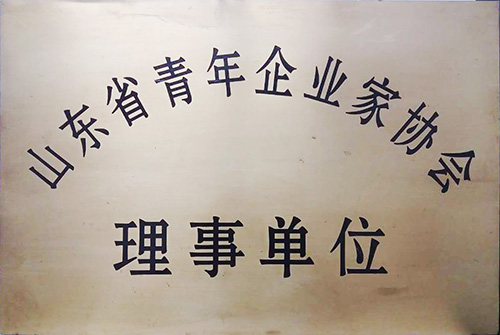 山东省青年企业家协会
理事单位